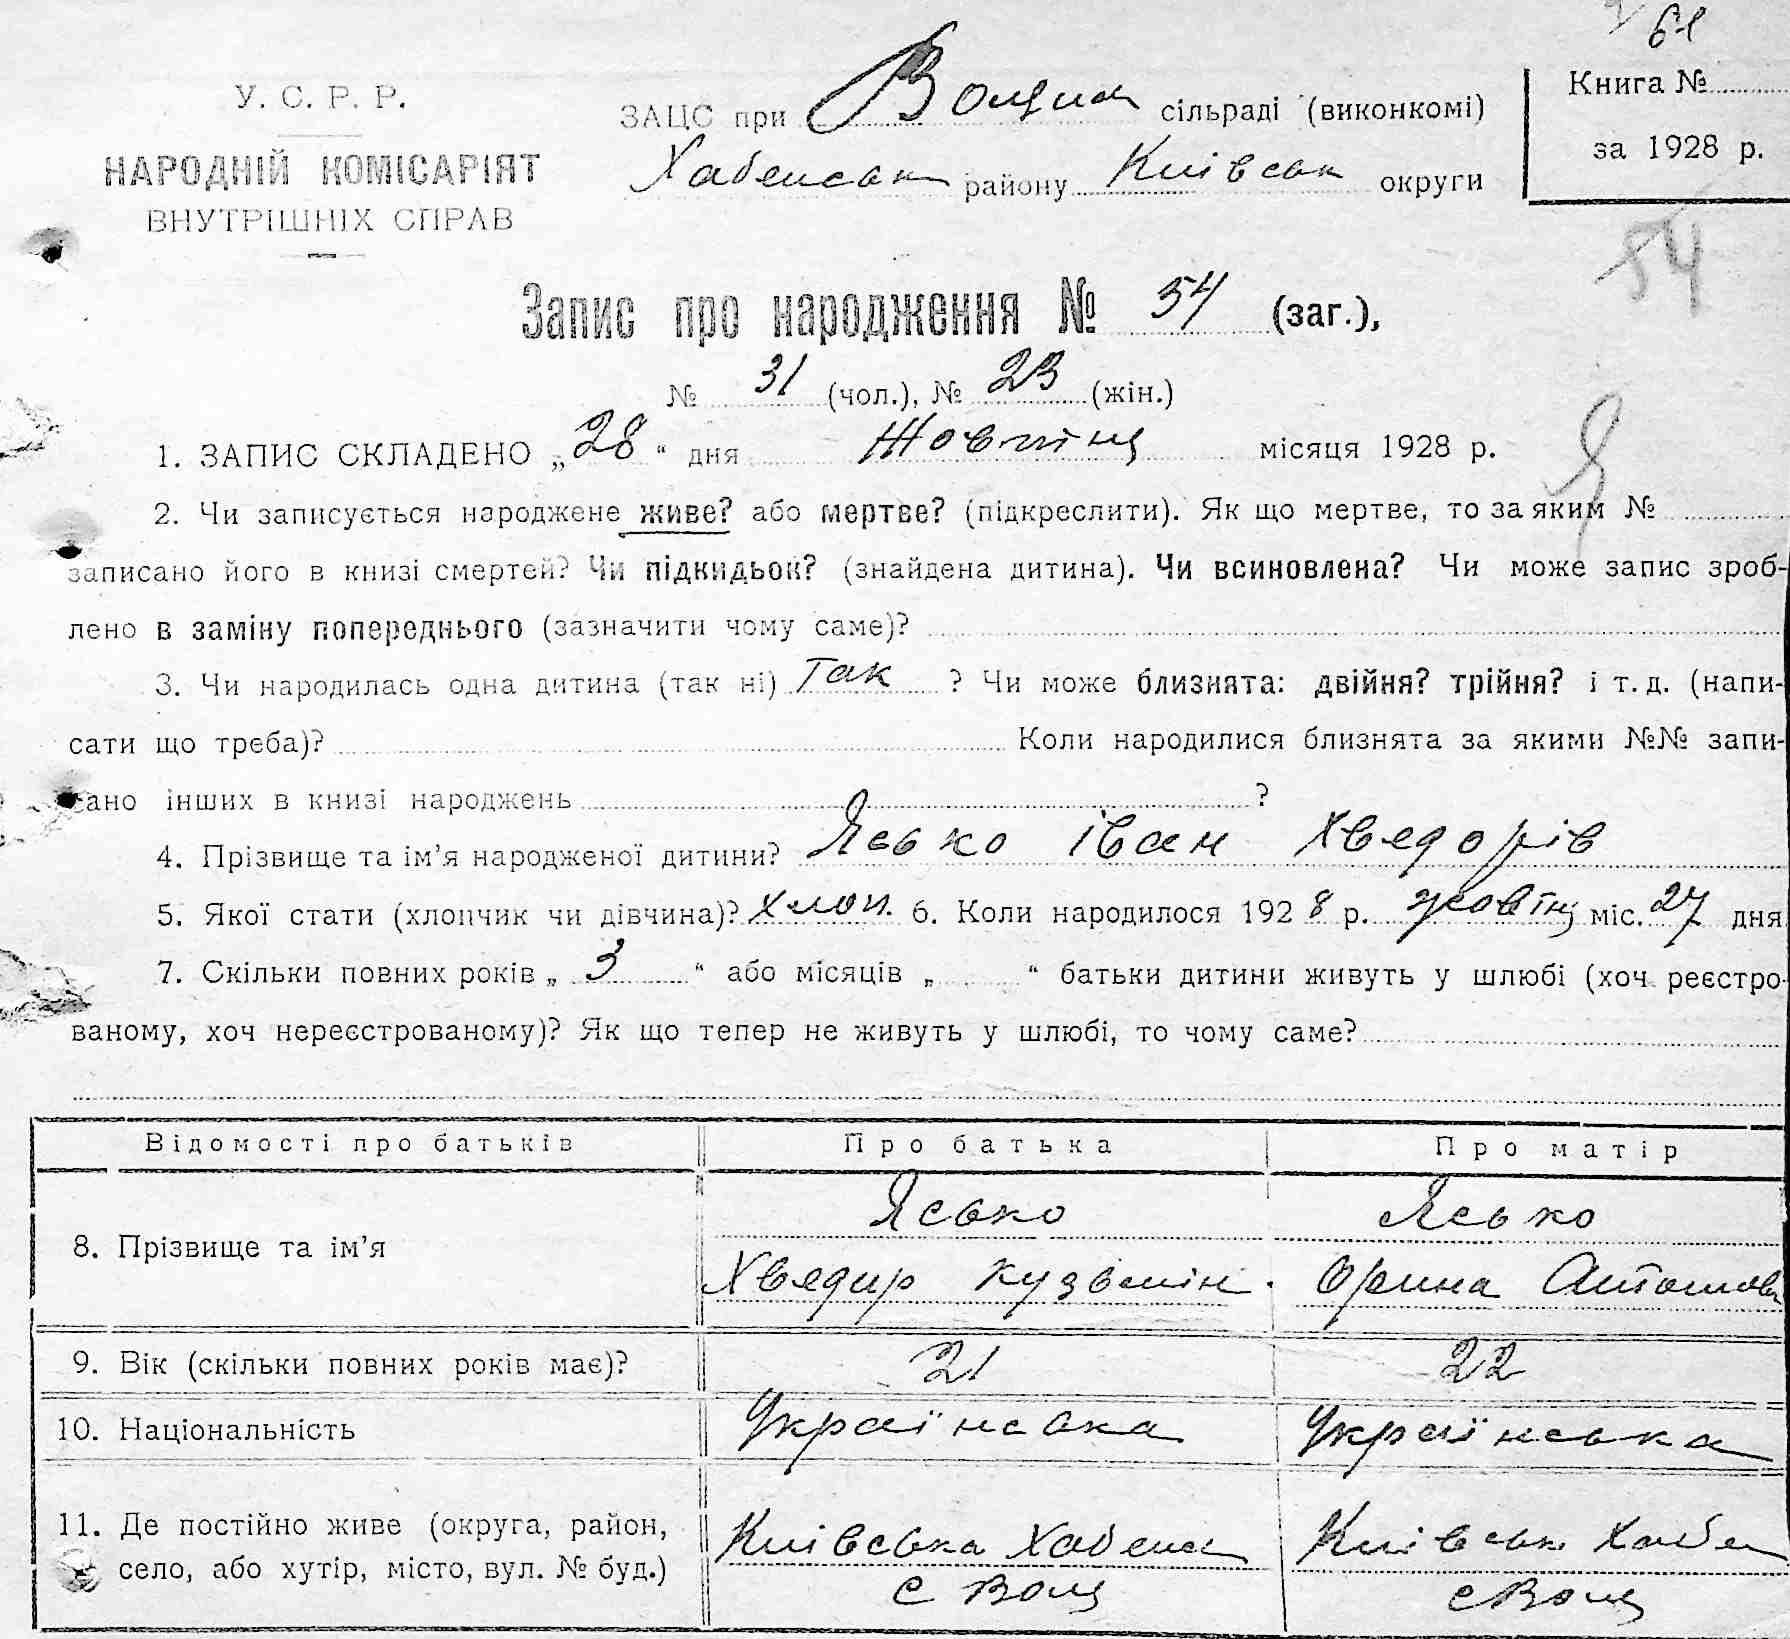 61
У. С. Р. Р.
НАРОДНІЙ КОМІСАРІЯТ
ВНУТРІШНІХ СПРАВ
ЗАЦС при сільраді (виконкомі)
Хабенськ району Київськ округи
Книга №
за 1928 р.
54
Запис про народження № 54 (заг.),
№ 31 (чол.), № 23 (жін.)
1. ЗАПИС СКЛАДЕНО „28“ дня Жовтня місяця 1928 р.
2. Чи записується народжене живе? або мертве? (підкреслити). Як що мертве, то за яким №
записано його в книзі смертей? Чи підкидьок? (знайдена дитина). Чи всиновлена? Чи може запис зроб-
лено в заміну попереднього (зазначити чому саме)?
3. Чи народилась одна дитина (так ні) Так ? Чи може близнята: двійня? трійня? і т. д. (напи-
сати що треба)? Коли народилися близнята за якими №№ запи-
сано інших в книзі народжень ?
4. Прізвище та ім’я народженої дитини? Ясько Іван Хведорів
5. Якої стати (хлопчик чи дівчина)? хлоп. 6. Коли народилося 1928 р. жовтня міс. 27 дня
7. Скільки повних років „ 3 “ або місяців „ “ батьки дитини живуть у шлюбі (хоч реєстро-
ваному, хоч нереєстрованому)? Як що тепер не живуть у шлюбі, то чому саме?
Відомості про батьків Про батька Про матір
8. Прізвище та ім’я Ясько Ясько
Хведир Кузьмін. Орина Антонова
9. Вік (скільки повних років має)? 21 22
10. Національність Українська Українська
11. Де постійно живе (округа, район, село, або хутір, місто, вул. № буд.) Київська Хабенс Київськ Хабен
с Вощ с Вощ